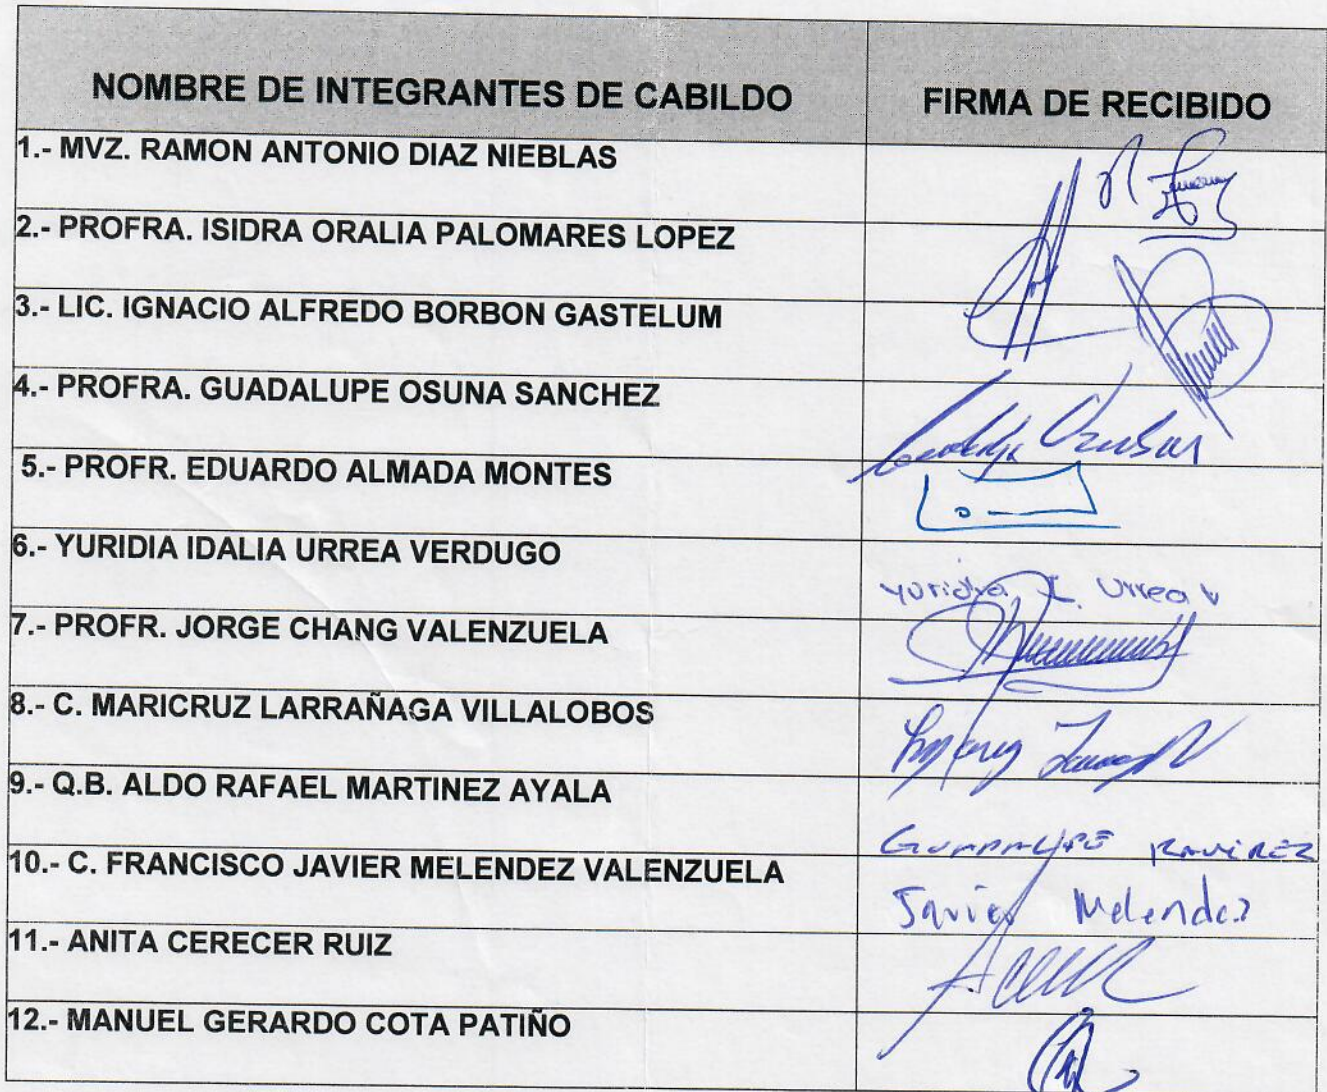 NOMBRE DE INTEGRANTES DE CABILDO FIRMA DE RECIBIDO
1.- MVZ. RAMON ANTONIO DIAZ NIEBLAS
2.- PROFRA. ISIDRA ORALIA PALOMARES LOPEZ
3.- LIC. IGNACIO ALFREDO BORBON GASTELUM
4.- PROFRA. GUADALUPE OSUNA SANCHEZ
5.- PROFR. EDUARDO ALMADA MONTES
6.- YURIDIA IDALIA URREA VERDUGO
Yuridia I. Urrea V
7.- PROFR. JORGE CHANG VALENZUELA
8.- C. MARICRUZ LARRAÑAGA VILLALOBOS
9.- Q.B. ALDO RAFAEL MARTINEZ AYALA
GUADALUPE RAMIREZ
10.- C. FRANCISCO JAVIER MELENDEZ VALENZUELA
Javier Melendez
11.- ANITA CERECER RUIZ
12.- MANUEL GERARDO COTA PATIÑO